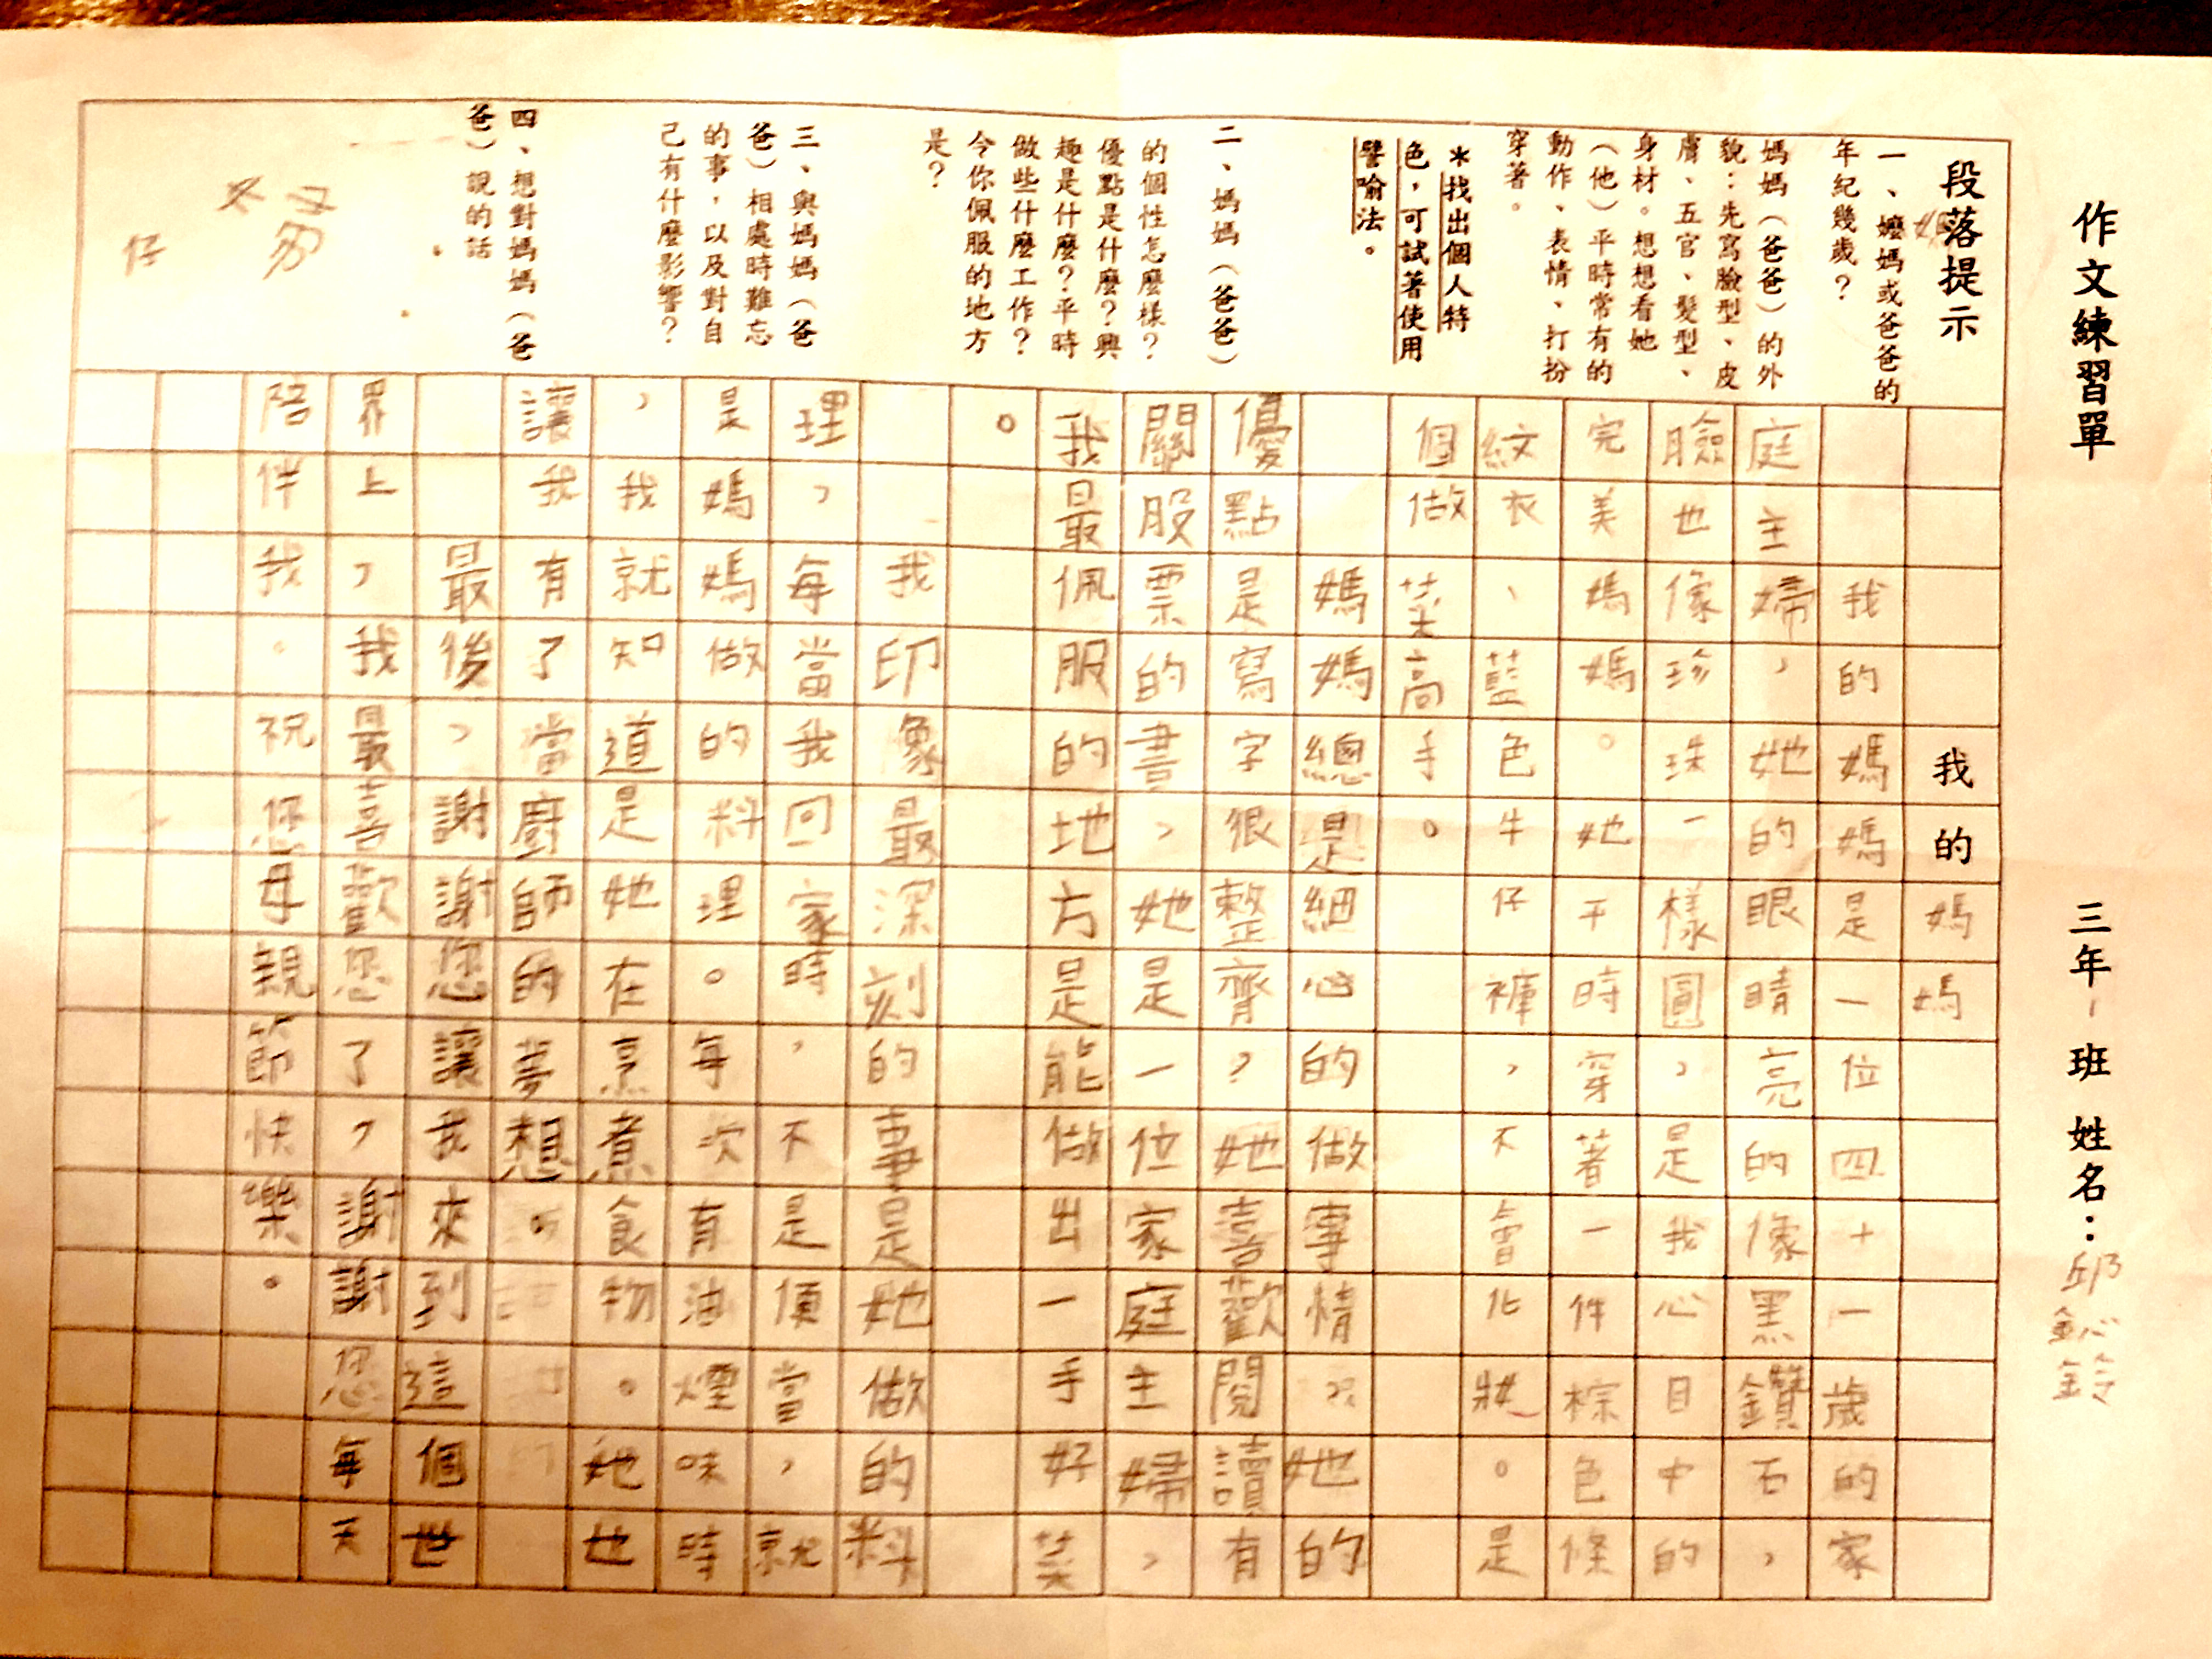 作文練習單
三年一班 姓名：邱鈊鈴
段落提示
一、嬤媽或爸爸的
年紀幾歲？
媽媽（爸爸）的外
貌：先寫臉型、皮
膚、五官、髮型、
身材。想想看她
（他）平時常有的
動作、表情、打扮
穿著。
＊找出個人特
色，可試著使用
譬喻法。
二、媽媽（爸爸）
的個性怎麼樣？
優點是什麼？興
趣是什麼？平時
做些什麼工作？
令你佩服的地方
是？
三、與媽媽（爸
爸）相處時難忘
的事，以及對自
己有什麼影響？
四、想對媽媽（爸
爸）說的話
仔
我的媽媽
我的媽媽是一位四十一歲的家
庭主婦，她的眼睛亮的像黑鑽石，
臉也像珍珠一樣圓，是我心目中的
完美媽媽。她平時穿著一件棕色條
紋衣、藍色牛仔褲，不會化妝。是
個做菜高手。
媽媽總是細心的做事情她的
優點是寫字很整齊，她喜歡閱讀有
關股票的書，她是一位家庭主婦，
我最佩服的地方是能做出一手好菜
。
我印像最深刻的事是她做的料
理，每當我回家時，不是便當，就
是媽媽做的料理。每次有油煙味時
，我就知道是她在烹煮食物。她也
讓我有了當廚師的夢想。
最後，謝謝您讓我來到這個世
界上，我最喜歡您了，謝謝您每天
陪伴我。祝您母親節快樂。